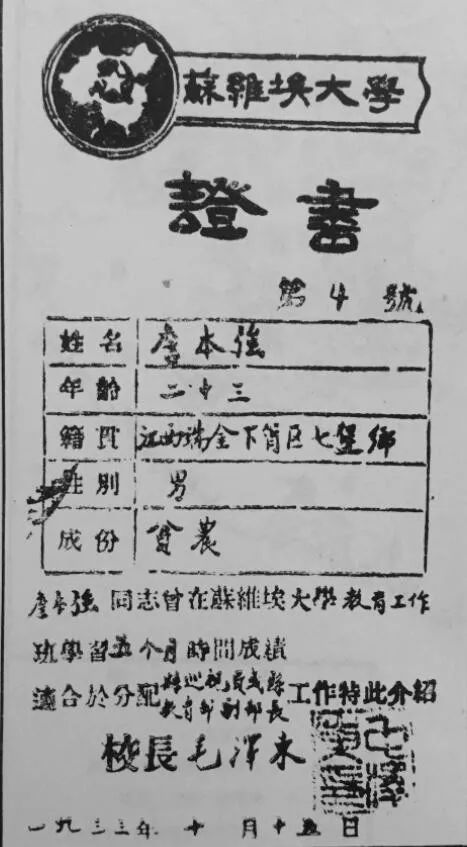 蘇維埃大學
證書
第 4 號
姓名 廖本強
年齡 二十三
籍貫 江西瑞金下肖区七堡鄉
性別 男
成份 貧農
廖本強 同志曾在蘇維埃大學教育工作
班學習五个月時間成績
適合於分配 縣巡視員或縣教育部副部長 工作特此介紹
校長毛澤東
一九三三年 十 月十五日